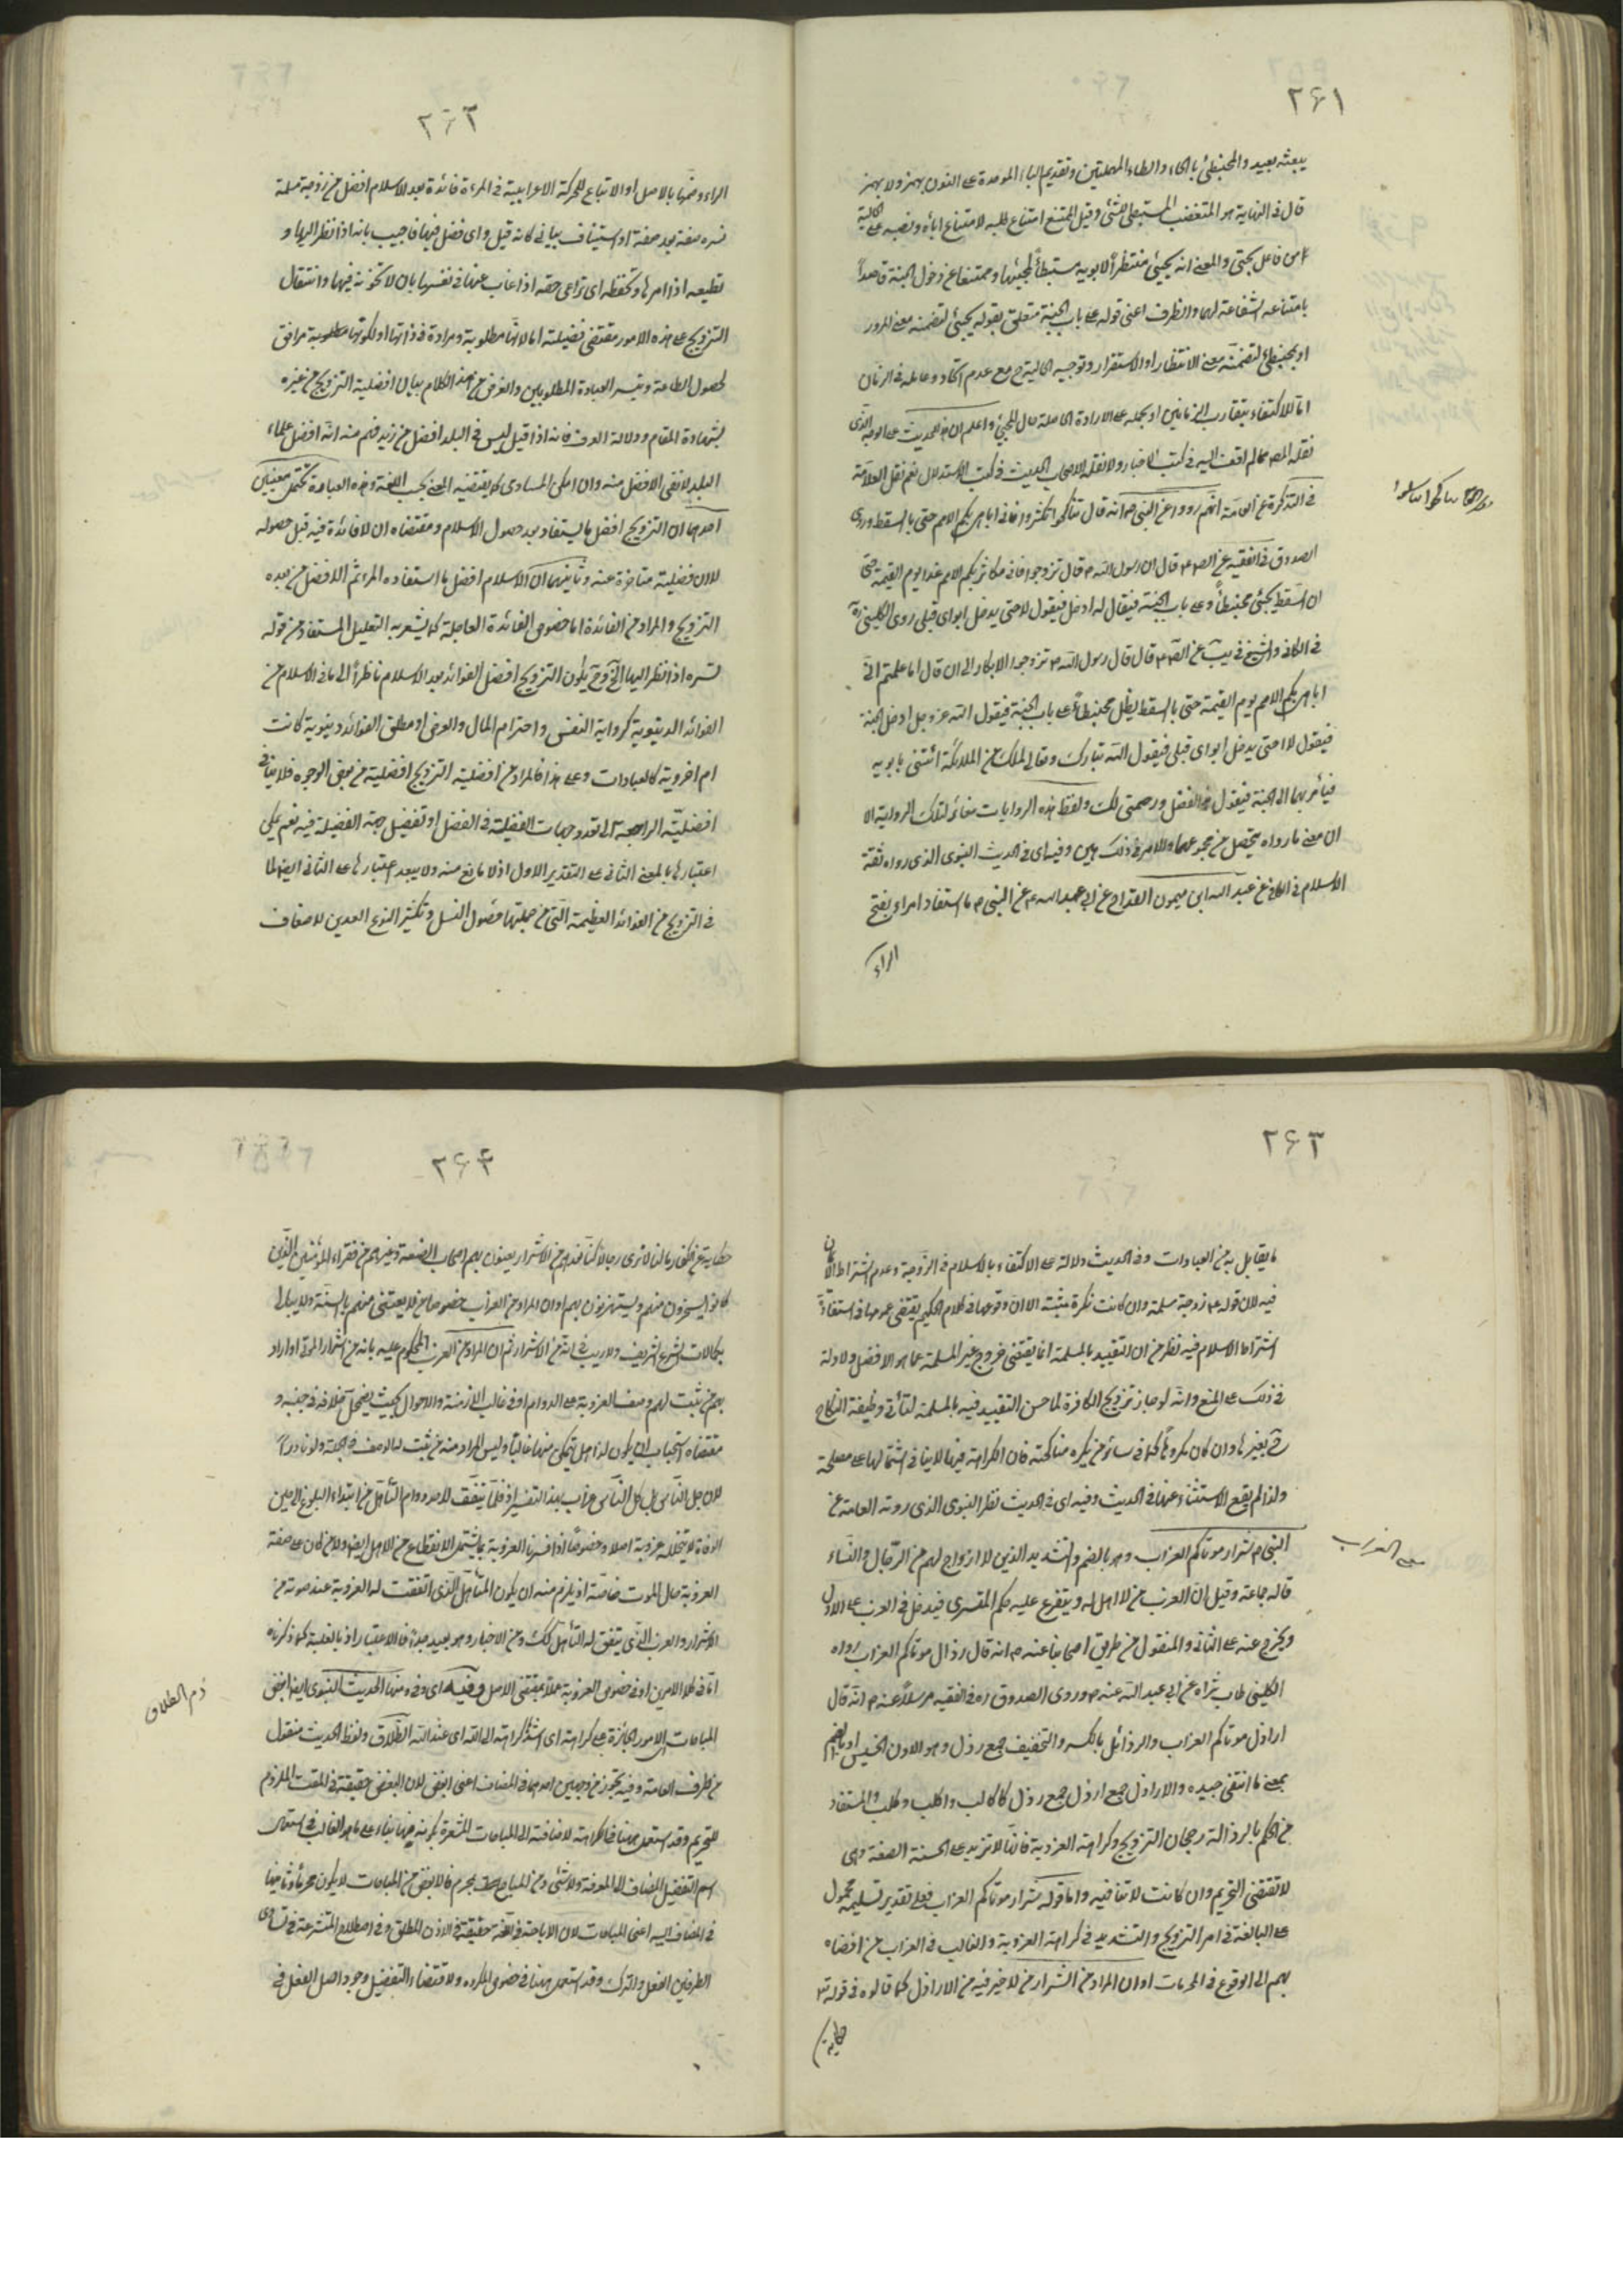 ۲۶۱
يبعثه بعيد والمحبنطئ بالحاء والطاء المهملتين وتقديم الباء الموحدة على النون يهمز ولا يهمز
قال في النهاية هو المتغضب المستبطئ للشئ وقيل الممتنع امتناع طلبه لا امتناع اباء ونصبه على الحالية
من فاعل يجئ والمعنى انه يجيئ منتظراً لابويه مستبطأ لمجيئهما وممتنعا عن دخول الجنة قاصداً
بامتناعه الشفاعة لهما والظرف اعنى قوله على باب الجنة متعلق بقوله يجيئ لتضمنه معنى المرور
او بمحبنطئ لتضمنه معنى الانتظار او الاستقرار وتوجيه الحالية ح مع عدم اتحاد وعامله في الزمان
اما للاكتفاء بتقارب الزمانين او بحمله على الارادة الحاصلة حال المجيئ واعلم ان هذا الحديث على الوجه الذى
نقله المص مما لم اقف اليه في كتب الاخبار ولا نقله الاصحاب الحديث في كتب الاستدلال نعم نقل العلامة
في التذكرة عن العامة انهم رووا عن النبى ص انه قال تناكحوا تكثروا فانى اباهى بكم الامم حتى بالسقط وروى
الصدوق في الفقيه عن الص ع قال ان رسول الله ص قال تزوجوا فانى مكاثر بكم الامم غدا يوم القيمة حتى
ان السقط يجئ محبنطأً على باب الجنة فيقال له ادخل فيقول لا حتى يدخل ابواى قبلى روى الكلينى ره
في الكافى والشيخ في يب عن الص ع قال قال رسول الله ص تزوجوا الابكار الى ان قال اما علمتم انى
اباهى بكم الامم يوم القيمة حتى بالسقط يظل محبنطأً على باب الجنة فيقول الله عز وجل ادخل الجنة
فيقول لا حتى يدخل ابواى قبلى فيقول الله تبارك وتعالى لملك من الملائكة ائتنى بابويه
فيأمر بهما الى الجنة فيقول هذا بفضل ورحمتى لك ولفظ هذه الروايات مغائر لتلك الرواية الا
ان معنى ما رواه يتحصل من مجموعهما والامر في ذلك هين وفيه اى في الحديث النبوى الذى رواه ثقة
الاسلام في الكافى عن عبد الله ابن ميمون القداح عن ابى عبد الله ع عن النبى ص ما استفاد امراء بفتح
الراء
۲۶۲
الراء وضمها بالاصل او الاتباع للحركة الاعرابية في المرءة فائدة بعد الاسلام افضل من زوجة مسلمة
تسره صفة بعد صفة او استيناف بيانى كانه قيل واى فضل فيها فاجيب بانه اذا نظر اليها و
تطيعه اذا امرها وتحفظه اى تراعى حقه اذا غاب عنها في نفسها بان لا تخونه فيها وانتقال
التزويج على هذه الامور مقتضى فضيلته اما لانها مطلوبة ومرادة في ذاتها او لكونها مطلوبة مرافق
لحصول الطاعة وتيسر العبادة المطلوبين والغرض من هذا الكلام بيان افضلية التزويج من غيره
بشهادة المقام ودلالة العرف فانه اذا قيل ليس في البلد افضل من زيد فهم منه انه افضل علماء
البلد لا نفى الافضل منه وان امكن المساوى كما يقتضيه المعنى بحسب اللغة وهذه العبارة تحتمل معنيين
احدهما ان التزويج افضل ما يستفاد بعد حصول الاسلام ومقتضاه ان لا فائدة فيه قبل حصوله
لان فضيلته متاخرة عنه وثانيهما ان الاسلام افضل ما استفاده المرء ثم الافضل من بعده
التزويج والمراد من الفائدة اما خصوص الفائدة العاجلة كما يشعر به التعليل المستفاد من قوله
تسره اذا نظر اليها الخ وح يكون التزويج افضل الفوائد بعد الاسلام ناظراً الى ما في الاسلام من
الفوائد الدنيوية كرواية النفس واحترام المال والعرض او مطلق الفوائد دنيوية كانت
ام اخروية كالعبادات وعلى هذا فالمراد من افضلية التزويج افضليته من بعض الوجوه فلا ينافى
افضلية الراجعة الى تعدد جهات الفضيلة في الفضل او تفضيل جهة الفضيلة فيه نعم يمكن
اعتبارها بالمعنى الثانى على التقدير الاول اذ لا مانع منه ولا يبعد اعتبارها على الثانى ايضا لما
في التزويج من الفوائد العظيمة التى من جملتها حصول النسل وتكثير النوع المعدين لاضعاف
۲۶۳
ما يقابل به من العبادات وفي الحديث دلالة على الاكتفاء بالاسلام في الزوجة وعدم اشتراط الايمان
فيه لان قوله ع زوجة مسلمة وان كانت نكرة مثبتة الا ان وقوعها في كلام الحكيم يقتضى عمومها في استفادة
اشتراط الاسلام فيه نظر من ان التقييد بالمسلمة انما يقتضى خروج غير المسلمة عما هو الافضل ولا دلالة
في ذلك على المنع وانه لو جاز تزويج الكافرة لما حسن التقييد فيه بالمسلمة لتأتى وظيفة النكاح
ح بغيرها وان كان مكروهاً كما في سائر من يكره مناكحته فان الكراهة فيها لا ينافى اشتمالها على مصلحة
ولذا لم يقع الاستثناء عنها في الحديث وفيه اى في الحديث نظر النبوى الذى روته العامة عن
النبى ص شرار موتاكم العزاب وهو بالضم والتشديد الذين لا ازواج لهم من الرجال والنساء
قاله جماعة وقيل ان العزب من لا اهل له ويتفرع عليه حكم المتسرى فيدخل في العزب على الاول
ويخرج عنه على الثانى والمنقول من طريق اصحابنا عنه ص انه قال رذال موتاكم العزاب رواه
الكلينى طاب ثراه عن ابى عبد الله عنه ص وروى الصدوق ره في الفقيه مرسلاً عنه ص انه قال
اراذل موتاكم العزاب والرذائل بالكسر والتخفيف جمع رذل وهو الدون الخسيس او بالضم
بمعنى ما انتفى جيده والاراذل جمع ارذل جمع رذل كاكالب واكلب وكلب والمستفاد
من الحكم بالرذالة رجحان التزويج وكراهة العزوبة فانها لا تزيد على الخسة الصفة وهى
لا تقتضى التحريم وان كانت لا تنافيه واما قوله شرار موتاكم العزاب فعلى تقدير تسليمه محمول
على المبالغة في امر التزويج والتشديد في كراهة العزوبة والغالب في العزاب من افضاه
بهم الى الوقوع في المحرمات او ان المراد من الشرار من لا خير فيه من الاراذل كما قالوه في قوله تعالى
حكاية
معنى العزاب
۲۶۴
حكاية عن الكفار ما لنا لا نرى رجالاً كنا نعدهم من الاشرار يعنون بهم اصحاب الصفة وغيرهم من فقراء المؤمنين الذين
كانوا يسخرون منهم ويستهزئون بهم او ان المراد من العزاب خصوص من لا يعتنى منهم بالسنة ولا يبالى
بكمالات الشرع الشريف ولا ريب في انه من الاشرار ثم ان المراد من العزب المحكوم عليه بانه من اشرار الموتى او اراذ
بهم من ثبت لهم وصف العزوبة على الدوام او في غالب الازمنة والاحوال بحيث يضمحل خلافه في جنبه و
مقتضاه استحباب ان يكون له اهل يتمكن منها غالباً وليس المراد منه من ثبت له الوصف في الجملة ولو نادراً
لان جل الناس بل كل الناس عزاب بهذا التفسير اذ قلما يتفق لاحد دوام التأهل من ابتداء البلوغ الى حين
الوفاة لا يتخلله عزوبة اصلا وخصوصاً اذا فسرنا العزوبة بما يشتمل الانقطاع من الاهل ايضا ولا من كان على صفة
العزوبة حال الموت خاصة اذ يلزم منه ان يكون المتأهل الذى اتفقت له العزوبة عند موته من
الاشرار والعزب الذى يتفق له التأهل كك ومن الاخيار وهو بعيد جداً فالاعتبار اذ بالغلبة كما ذكرناه
اما في كلا الامرين او في خصوص العزوبة عملاً بمقتضى الاصل وفيه اى وفى منها الحديث النبوى ايضا ابغض
المباحات الامور الجائزة على كراهة اى اشد كراهته الى الله اى عند الله الطلاق ولفظ الحديث منقول
من طرف العامة وفيه تجوز من وجهين احدهما في المضاف اعنى ابغض لان البغض حقيقة في المقت الملزوم
للتحريم وقد استعمل ههنا في الكراهة لاضافته الى المباحات المشعرة بكونه منها بناء على ما هو الغالب في استعمال
اسم التفضيل المضاف الى المعرفة ولا شئ من المباح بمحرم فالابغض من المباحات لا يكون محرماً وثانيهما
في المضاف اليه اعنى المباحات لان الاباحة في اللغة حقيقة في الاذن المطلق وفي اصطلاح المتشرعة في تساوى
الطرفين الفعل والترك وقد استعمل ههنا في خصوص المكروه ولاقتضاء التفضيل وجود اصل الفعل في
ذم الطلاق